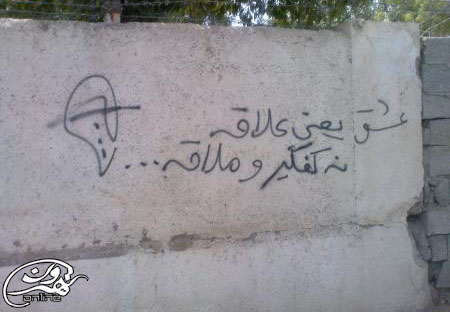 عشق یعنی علاقه
نه کفگیر و ملاقه...
online